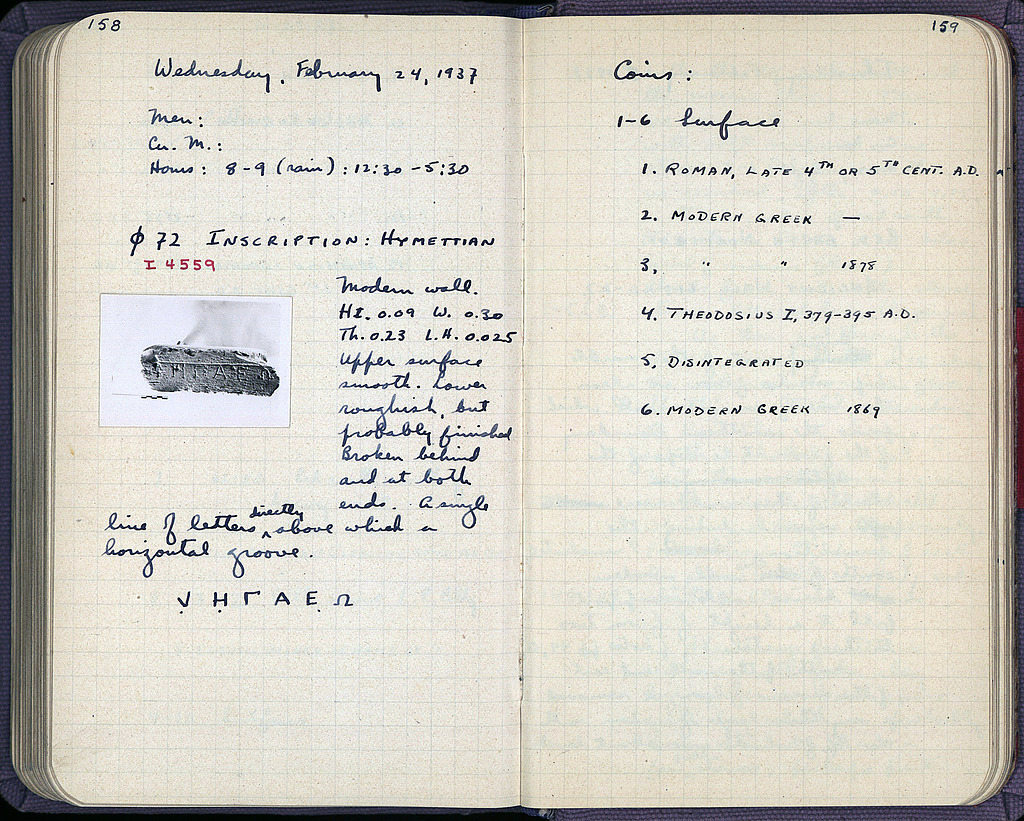 158
Wednesday, February 24, 1937
Men:
Cu. M.:
Hours: 8-9 (rain): 12:30-5:30
φ 72 INSCRIPTION: HYMETTIAN
I 4559
Modern wall.
Ht. 0.09 W. 0.30
Th. 0.23 L.H. 0.025
Upper surface
smooth. Lower
roughish, but
probably finished
Broken behind
and at both
ends. A single
line of letters directly above which a
horizontal groove.
Η Γ Α Ε Ω
159
Coins:
1-6 Surface
1. ROMAN, LATE 4TH OR 5TH CENT. A.D.
2. MODERN GREEK —
3. " " 1878
4. THEODOSIUS I, 379-395 A.D.
5. DISINTEGRATED
6. MODERN GREEK 1869